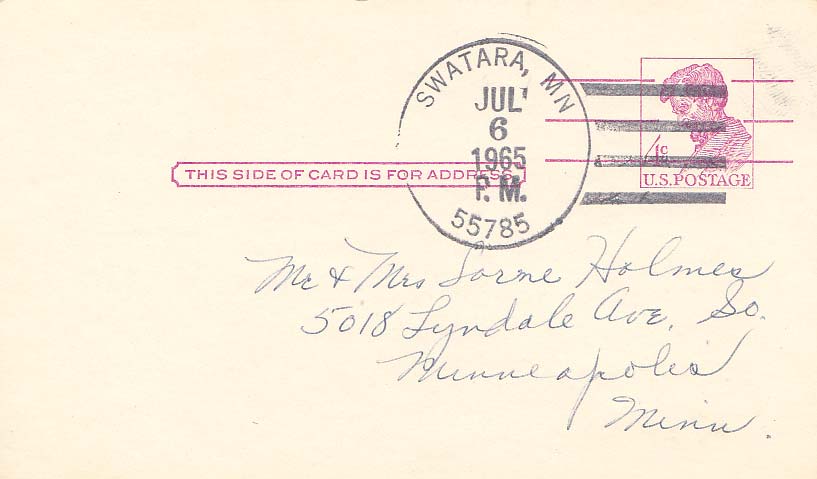 SWATARA, MN
JUL
6
1965
P.M.
55785
4c
U.S. POSTAGE
THIS SIDE OF CARD IS FOR ADDRESS
Mr & Mrs Lorne Holmes
5018 Lyndale Ave. So.
Minneapolis
Minn.